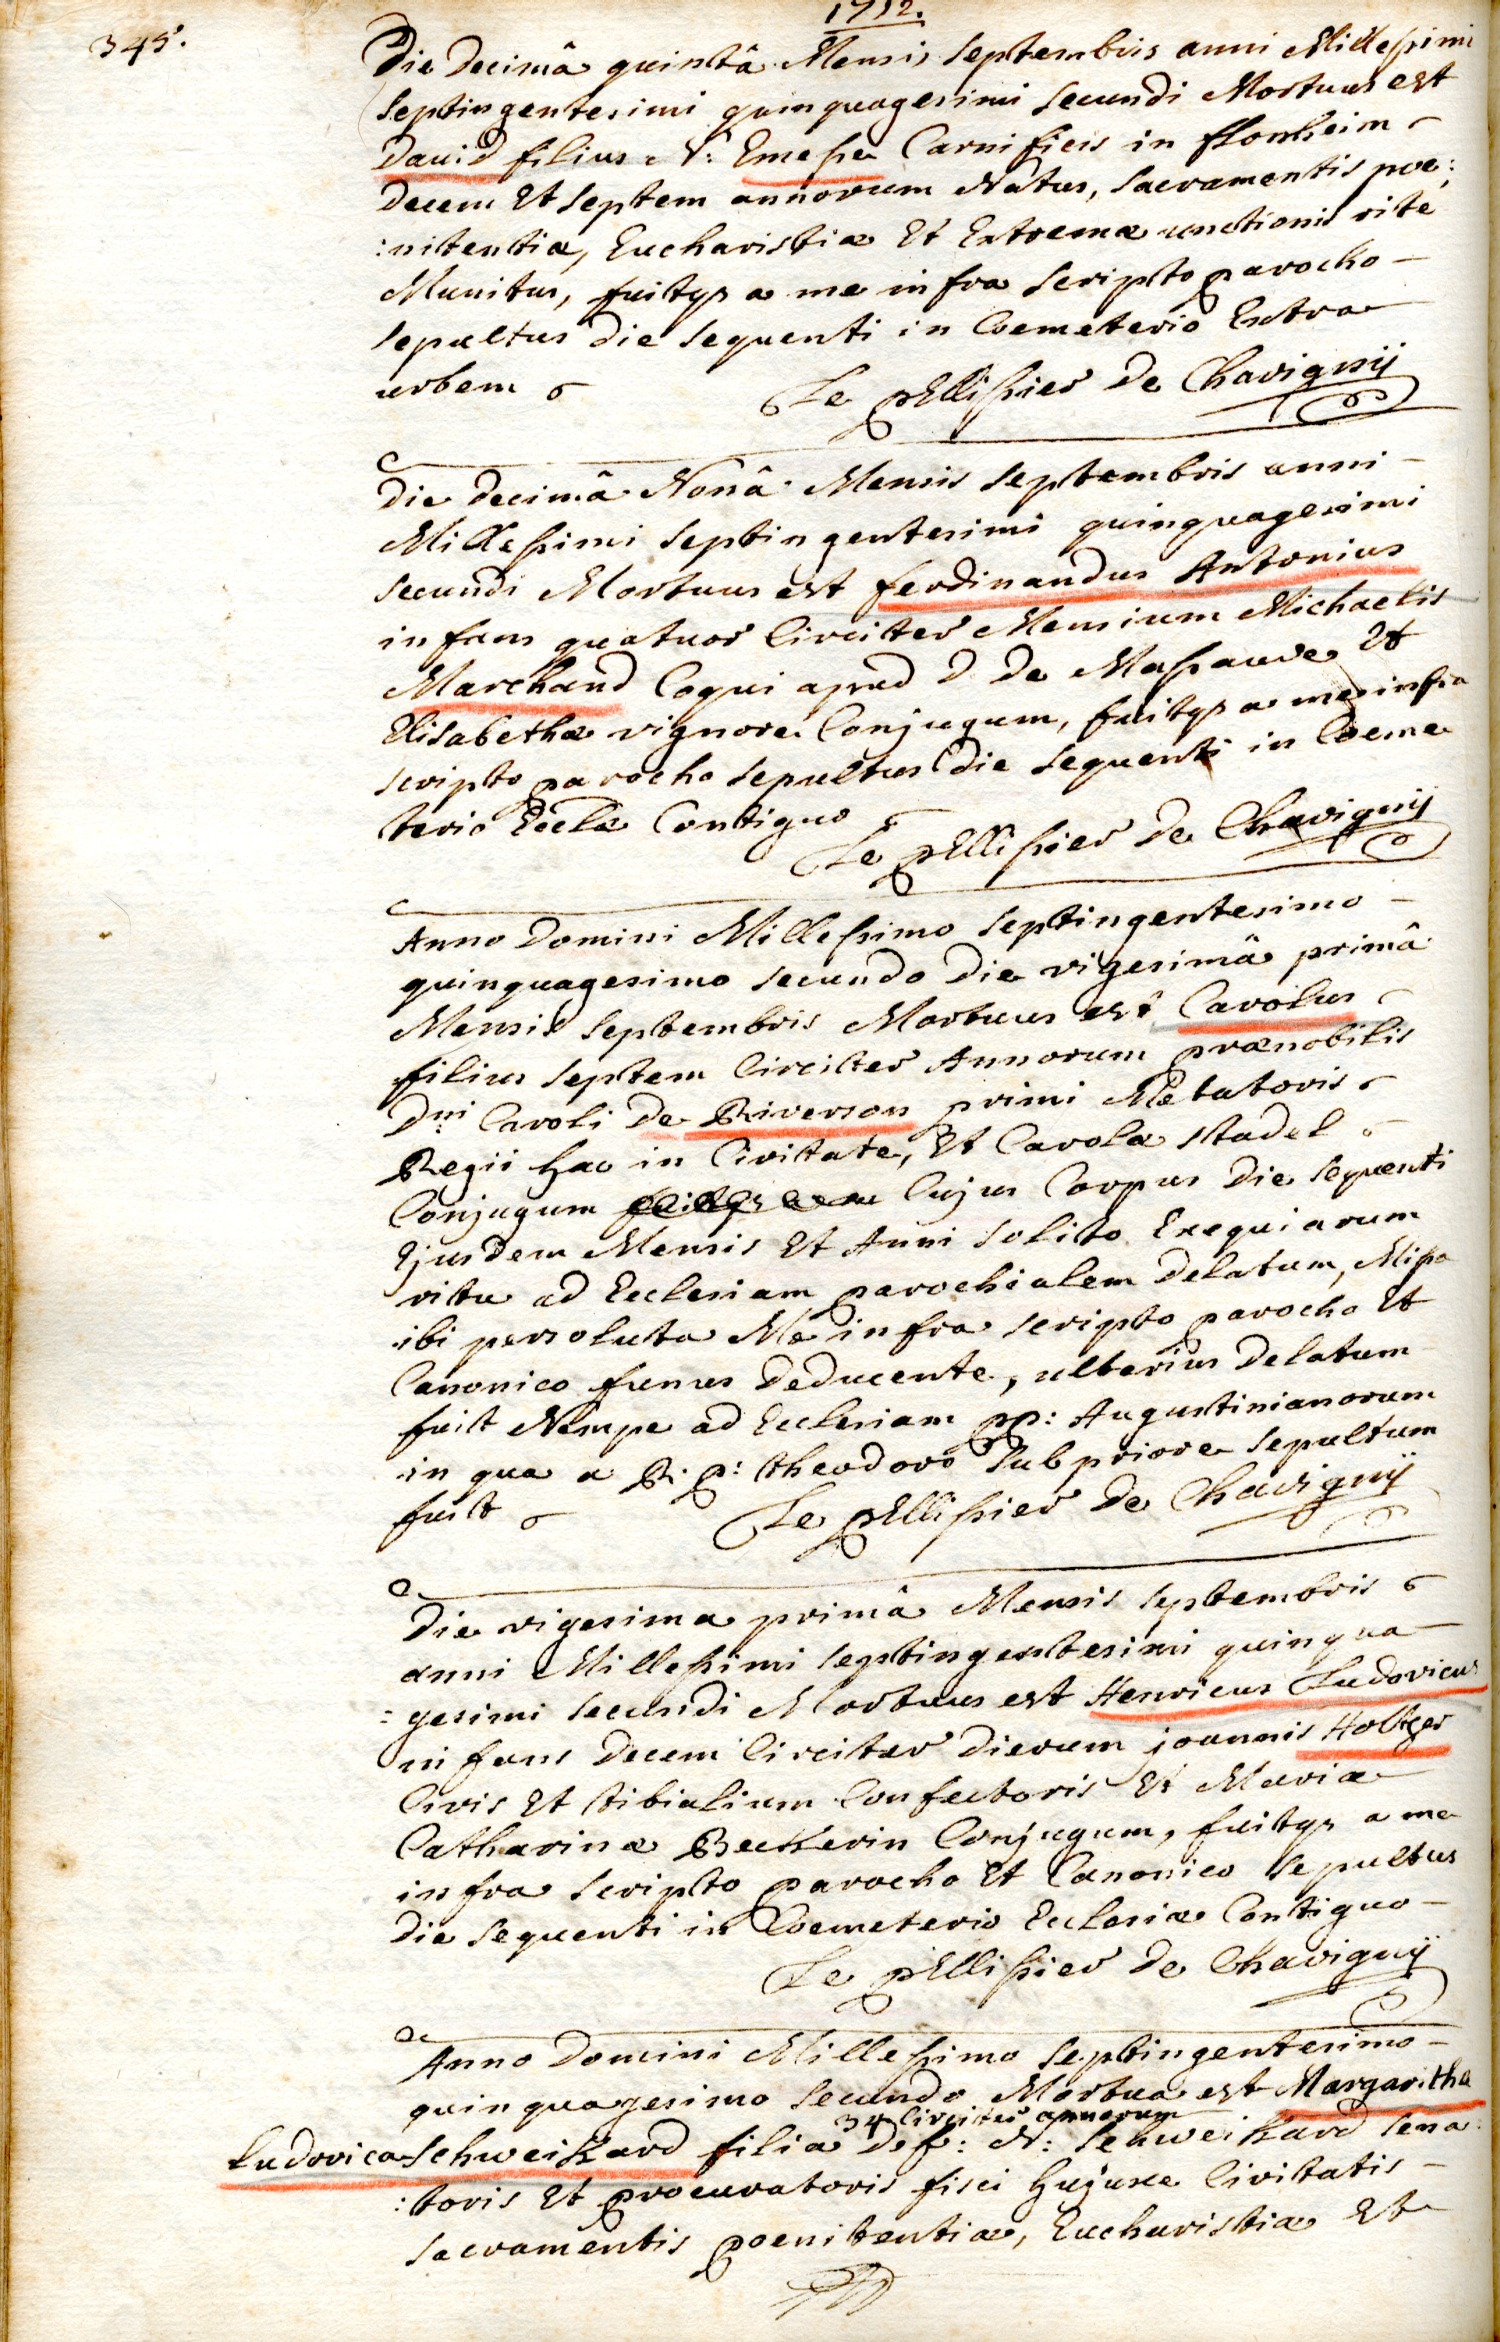 1752.
345.
Die Decimâ quintâ Mensis Septembris anni Millesimi
Septingentesimi quinquagesimi Secundi Mortuus est
David filius N: Emesse Carnificis in flonheim
Decem Et Septem annorum Natus, Sacramentis poe:
:nitentiæ, Eucharistiæ Et Extremæ unctionis rite
Munitus, fuitqs a me infra Scripto parocho
Sepultus Die Sequenti in Coemeterio Extra
urbem
Le pEllissier De Chavignÿ
Die Decimâ Nonâ Mensis Septembris anni
Millesimi Septingentesimi quinquagesimi
Secundi Mortuus est ferdinandus Antonius
infans quatuor Circiter Mensium Michaelis
Marchand Coqui apud D. De Massauve Et
Elisabethæ vignore Conjugum, fuitqs a me infra
scripto parocho Sepultus Die Sequenti in Coeme
terio Eccłæ Contiguo
Le pEllissier De Chavignÿ
Anno Domini Millessimo Septingentesimo
quinquagesimo Secundo Die vigesimâ primâ
Mensis Septembris Mortuus est Carolus
filius Septem Circiter Annorum prænobilis
Dni Caroli De Riverson primi Metatoris
Regii hac in Civitate, Et Carolæ Stadel
Conjugum Cujus Corpus Die Sequenti
Ejusdem Mensis Et Anni Solito Exequiarum
ritu ad Ecclesiam parochialem Delatum, Missa
ibi persoluta Me infra Scripto parocho Et
Canonico funus Deducente, ulterius Delatum
fuit Nempe ad Ecclesiam pp: Augustinianorum
in qua a R. p: theodoro Subpriore Sepultum
fuit
Le pEllissier De Chavignÿ
Die vigesima primâ Mensis Septembris
anni Millessimi Septingentesimi quinqua
=gesimi Secundi Mortuus est Henricus Ludovicus
infans Decem Circiter Dierum joannis Holtzer
Civis Et tibialium Confectoris Et Mariæ
Catharinæ Beckerin Conjugum, fuitqs a me
infra Scripto parocho Et Canonico Sepultus
Die Sequenti in Coemeterio Ecclesiæ Contiguo
Le pEllissier De Chavignÿ
Anno Domini Millessimo Septingentesimo
quinquagesimo Secundo Mortua est Margaritha
34 Circiter annorum
Ludovica Schweikard filia Def: N: Schweikard Sena:
:toris Et procuratoris fisci hujusce Civitatis
Sacramentis poenitentiæ, Eucharistiæ Et